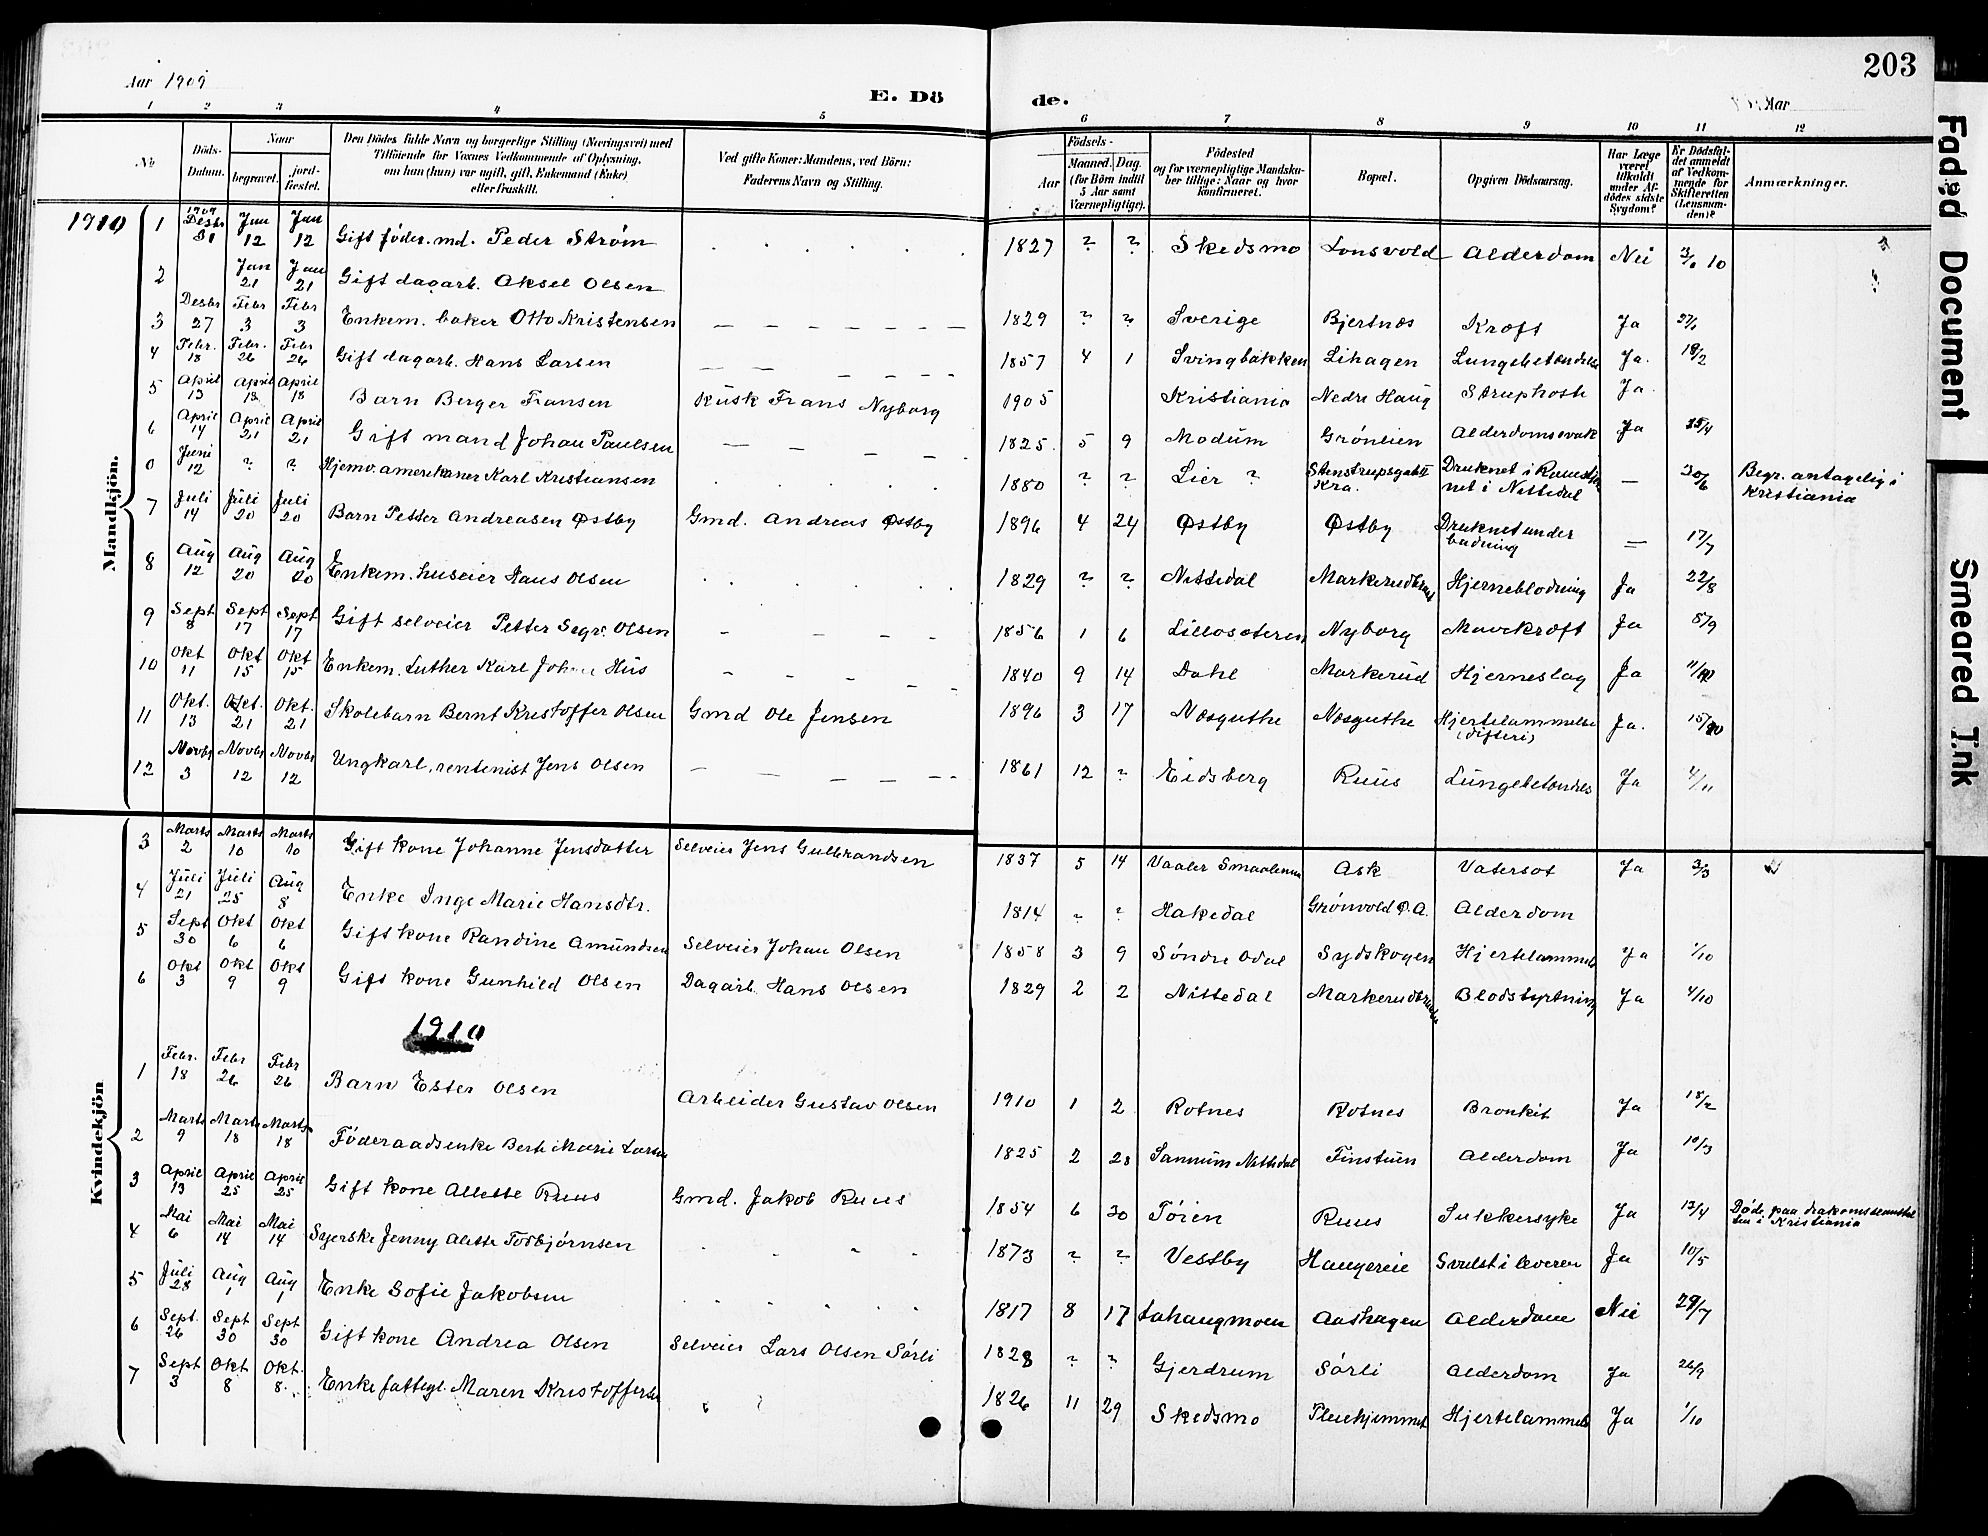 203
Aar 1909
E. Dö de.
Aar
1 2 3 4 5 6 7 8 9 10 11 12
No
Döds-Datum.
Naar
begravet.
jordfæstet.
Den Dödes fulde Navn og borgerlige Stilling (Næringsvei) med Tilföiende for Voxnes Vedkommende af Oplysning, om han (hun) var ugift, gift, Enkemand (Enke) eller fraskilt.
Ved gifte Koner: Mandens, ved Börn: Faderens Navn og Stilling.
Födsels-
Aar
Maaned. Dag.
(for Börn indtil 5 Aar samt Værnepligtige).
Födested og for værnepligtige Mandskaber tillige: Naar og hvor konfirmeret.
Bopæl.
Opgiven Dödsaarsag.
Har Læge været tilkaldt under Afdödes sidste Sygdom?
Er Dödsfaldet anmeldt af Vedkommende for Skifteretten (Lensmanden)?
Anmærkninger.
Mandkjön.
1910 1 1909 Desbr 31 Jan 12 Jan 12 Gift föder.md. Peder Strøm 1827 ? ? Skedsmo Lonsvold Alderdom Nei 3/1 10
2 Jan 21 Jan 21 Gift dagarb. Aksel Olsen
3 Desbr 27 Febr 3 Febr 3 Enkem. baker Otto Kristensen 1829 ? ? Sverige Bjertnæs Kræft Ja 27/1
4 Febr. 18 Febr. 26 Febr 26 Gift dagarb. Hans Larsen 1857 4 1 Svingbakken Lihagen Lungebetændelse Ja. 18/2
5 April 13 April 18 April 18 Barn Berger Fransen Kusk Frans Nyborg 1905 Kristiania Nedre Haug Struphoste Ja.
6 April 14 April 21 April 21 Gift mand Johan Paulsen 1825 5 9 Modum Grønlien Alderdomssvak Ja 25/4
0 Juni 12 ? ? Hjemv. amerikaner Karl Kristiansen 1880 ? ? Lier ? Stenstrupsgate Kra. Druknet i Nittedal — 30/6 Begr. antagelig i Kristiania
7 Juli 14 Juli 20 Juli 20 Barn Petter Andreasen Østby Gmd. Andreas Østby 1896 4 24 Østby Østby Druknet under badning — 17/7
8 Aug 12 Aug 20 Aug 20 Enkem. huseier Hans Olsen 1829 ? ? Nittedal Hjerneblødning Ja 22/8
9 Sept 8 Sept 17 Sept 17 Gift selveier Petter Segv. Olsen 1856 1 6 Lilloseteren Nyborg Mavekræft Ja 5/9
10 Okt 11 Okt 15 Okt 15 Enkem. Luther Karl Hus 1840 9 14 Dahl Markerud Hjerneslag Ja 11/10
11 Okt. 13 Okt. 21 Okt. 21 Skolebarn Bernt Kristoffer Olsen Gmd Ole Jensen 1896 3 17 Næsguthe Næsguthe Hjertelammelse (difteri) Ja. 15/10
12 Novbr 3 Novbr 12 Novbr 12 Ungkarl, rentenist Jens Olsen 1861 12 ? Eidsberg Ruus Lungebetændels Ja 4/11
Kvindekjön
3 Marts 2 Marts 10 Marts 10 Gift kone Johanne Jensdatter Selveier Jens Gulbrandsen 1837 5 14 Vaaler Smaalenene Ask Vatersot Ja 3/3
4 Juli 21 Juli 25 Aug 8 Enke Inge Marie Hansdtr. 1814 ? ? Hakedal Grønvold Ø.A. Alderdom
5 Sept 30 Okt 6 Okt 6 Gift kone Randine Amundsen Selveier Johan Olsen 1858 3 9 Søndre Odal Sydskogen Hjertelammels Ja 1/10
6 Okt 3 Okt 9 Okt 9 Gift kone Gunhild Olsen Dagarb. Hans Olsen 1829 2 2 Nittedal Blodstyrtning Ja 4/10
1910
1 Febr. 18 Febr 26 Febr 26 Barn Ester Olsen Arbeider Gustav Olsen 1910 1 2 Rotnes Rotnes Bronkit Ja 18/2
2 Marts 9 Marts 18 Marts 18 Föderaadsenke Berte Marie Larsen 1825 2 28 Sannum Nittedal Finstuen Alderdom Ja 10/3
3 April 13 April 25 April 25 Gift kone Alette Ruus Gmd. Jakob Ruus 1854 6 30 Tøien Ruus Sukkersyke Ja 13/4 Døde paa i Kristiania
4 Mai 6 Mai 14 Mai 14 Syerske Jenny Alette Torbjørnsen 1873 ? ? Vestby Haugereie Svulst i leveren Ja 10/5
5 Juli 28 Aug 1 Aug 1 Enke Sofie Jakobsen 1817 8 17 Lahaugmoen Aashagen Alderdom Nei 29/7
6 Sept. 26 Sept 30 Sept 30 Gift kone Andrea Olsen Selveier Lars Olsen Sørli 1828 ? ? Gjerdrum Sørli Alderdom Ja 26/9
7 Sept 3 Okt 8 Okt. 8. Enke fattigl. Maren Kristoffersen 1826 11 29 Skedsmo Pleiehjemmet Hjertelammels Ja 1/10
Faded Document
Smeared Ink